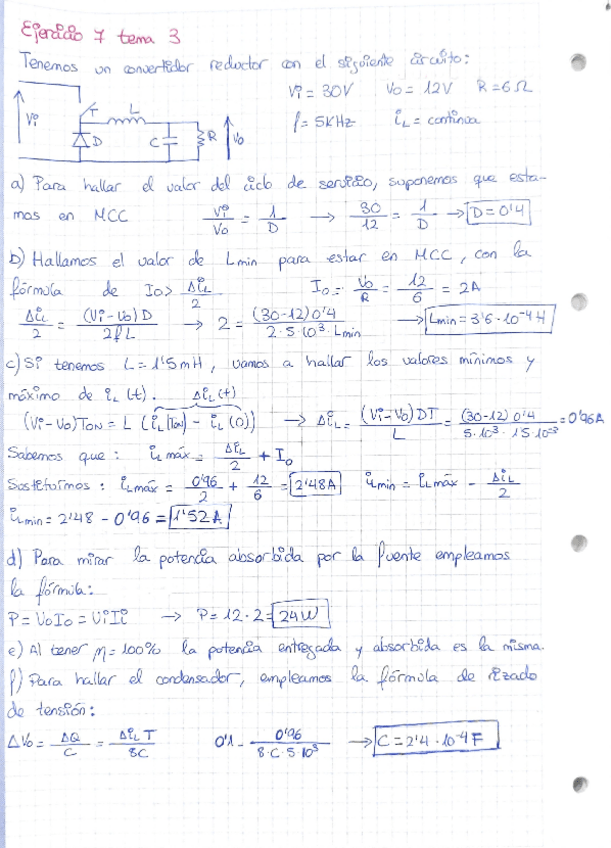 Ejercicio 7 tema 3
Tenemos un convertidor reductor con el siguiente circuito:
Vi = 30V Vo = 12V R = 6Ω
f = 5KHz iL = continua
Vi T L D C R Vo
a) Para hallar el valor del ciclo de servicio, suponemos que esta-
mos en MCC Vi/Vo = 1/D → 30/12 = 1/D → D = 0'4
b) Hallamos el valor de Lmin para estar en MCC, con la
fórmula de Io > ΔiL/2 Io = Vo/R = 12/6 = 2A
ΔiL/2 = (Vi-Vo)D/2fL → 2 = (30-12)0'4/2·5·10³·Lmin → Lmin = 3'6·10⁻⁴H
c) Si tenemos L = 1'5mH, vamos a hallar los valores mínimos y
máximo de iL(t). ΔiL(t)
(Vi-Vo)TON = L (iL(TON) - iL(0)) → ΔiL = (Vi-Vo)DT/L = (30-12)0'4/5·10³·1'5·10⁻³ = 0'96A
Sabemos que: iLmáx = ΔiL/2 + Io
Sustituimos: iLmáx = 0'96/2 + 12/6 = 2'48A iLmin = iLmáx - ΔiL/2
iLmin = 2'48 - 0'96 = 1'52A
d) Para mirar la potencia absorbida por la fuente empleamos
la fórmula:
P = VoIo = ViIi → P = 12·2 = 24W
e) Al tener η = 100% la potencia entregada y absorbida es la misma.
f) Para hallar el condensador, empleamos la fórmula de rizado
de tensión:
ΔVo = ΔQ/C = ΔiL T/8C 0'1 - 0'96/8·C·5·10³ → C = 2'4·10⁻⁴F